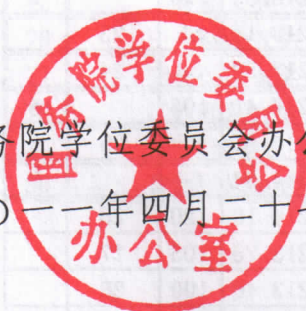 国务院学位委员会
办公室
务院学位委员会办公
〇一一年四月二十